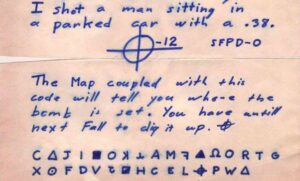 I shot a man sitting in
a parked car with a .38.
-12 SFPD-0
The Map coupled with this
code will tell you whoe the
bomb is set. You have antill
next Fall to dig it up.
C Δ J I ■ O ʞ ⊥ A M ꟻ ▲ Ω O R T G
X ⊙ F D V ▣ H C E L ⌖ P W Δ